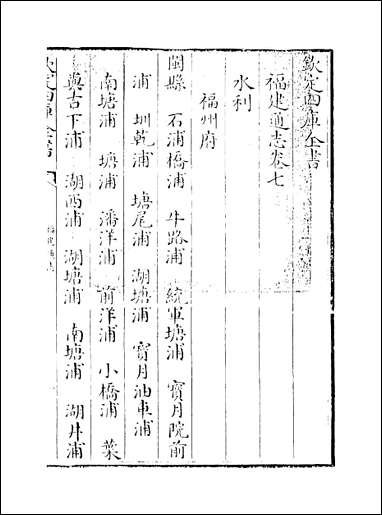 欽定四庫全書
福建通志卷七
水利
福州府
閩縣 石浦橋浦 牛路浦 統軍塘浦 寶月院前
浦 圳乾浦 塘尾浦 湖塘浦 寶月油車浦
南塘浦 塘浦 潘洋浦 前洋浦 小橋浦 葉
與古下浦 湖西浦 湖塘浦 南塘浦 湖井浦
欽定四庫全書
福建通志